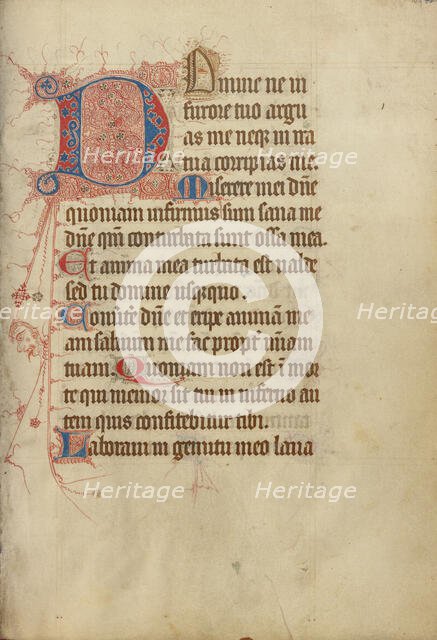 Domine ne in
furore tuo argu
as me neqz in ira
tua corripias me.
Miserere mei dñe
quoniam infirmus sum sana me
dñe qm̃ conturbata sunt ossa mea.
Et anima mea turbata est valde
sed tu domine usqzquo.
Convẽte dñe et eripe animã me
am salvum me fac propt̃ mĩam
tuam. Quoniam non est ĩ mor
te qui memor sit tui in inferno au
tem quis confitebitur tibi.
Laboravi in gemitu meo lava
Heritage Heritage
C
Heritage Heritage
Heritage Heritage